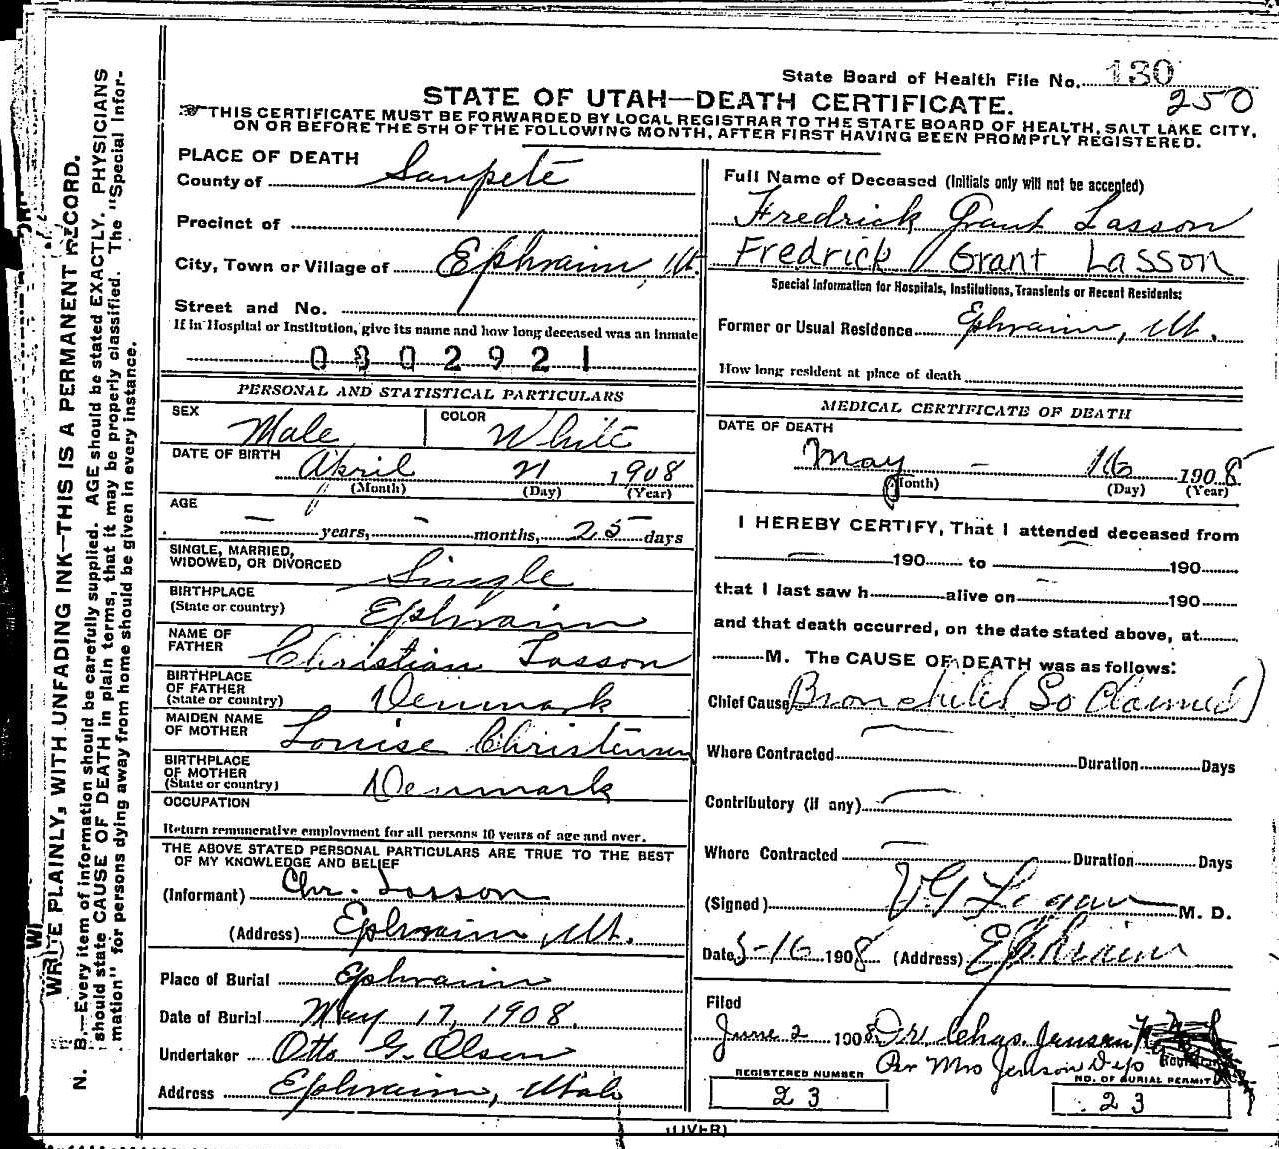 State Board of Health File No. 130
250
STATE OF UTAH—DEATH CERTIFICATE.
THIS CERTIFICATE MUST BE FORWARDED BY LOCAL REGISTRAR TO THE STATE BOARD OF HEALTH, SALT LAKE CITY,
ON OR BEFORE THE 5TH OF THE FOLLOWING MONTH, AFTER FIRST HAVING BEEN PROMPTLY REGISTERED.
WRITE PLAINLY, WITH UNFADING INK—THIS IS A PERMANENT RECORD.
N. B.—Every item of information should be carefully supplied. AGE should be stated EXACTLY. PHYSICIANS
should state CAUSE OF DEATH in plain terms, that it may be properly classified. The "Special Infor-
mation" for persons dying away from home should be given in every instance.
PLACE OF DEATH
County of Sanpete
Precinct of
City, Town or Village of Ephraim, Ut.
Street and No.
If in Hospital or Institution, give its name and how long deceased was an inmate
0302921
PERSONAL AND STATISTICAL PARTICULARS
SEX Male COLOR White
DATE OF BIRTH April 21 1908
(Month) (Day) (Year)
AGE
— years, — months, 25 days
SINGLE, MARRIED,
WIDOWED, OR DIVORCED Single
BIRTHPLACE
(State or country) Ephraim
NAME OF
FATHER Christian Lasson
BIRTHPLACE
OF FATHER
(State or country) Denmark
MAIDEN NAME
OF MOTHER Louise Christensen
BIRTHPLACE
OF MOTHER
(State or country) Denmark
OCCUPATION
Return remunerative employment for all persons 10 years of age and over.
THE ABOVE STATED PERSONAL PARTICULARS ARE TRUE TO THE BEST
OF MY KNOWLEDGE AND BELIEF
(Informant) Chr. Lasson
(Address) Ephraim, Ut.
Place of Burial Ephraim
Date of Burial May 17, 1908.
Undertaker Otto G. Olsen
Address Ephraim, Utah
Full Name of Deceased (Initials only will not be accepted)
Fredrick Grant Lasson
Fredrick Grant Lasson
Special Information for Hospitals, Institutions, Transients or Recent Residents:
Former or Usual Residence Ephraim, Ut.
How long resident at place of death
MEDICAL CERTIFICATE OF DEATH
DATE OF DEATH
May — 16 1908
(Month) (Day) (Year)
I HEREBY CERTIFY, That I attended deceased from
— 190 to 190
that I last saw h alive on — 190
and that death occurred, on the date stated above, at
M. The CAUSE OF DEATH was as follows:
Chief Cause Bronchitis (So Claimed)
Where Contracted — Duration Days
Contributory (if any) —
Where Contracted — Duration Days
(Signed) M. D.
Date 5-16 1908 (Address) Ephraim
Filed
June 2 1908 Dr Chas. Jensen
Registrar
Per Mrs Jenson Dep
REGISTERED NUMBER
23
NO. OF BURIAL PERMIT
23
(OVER)